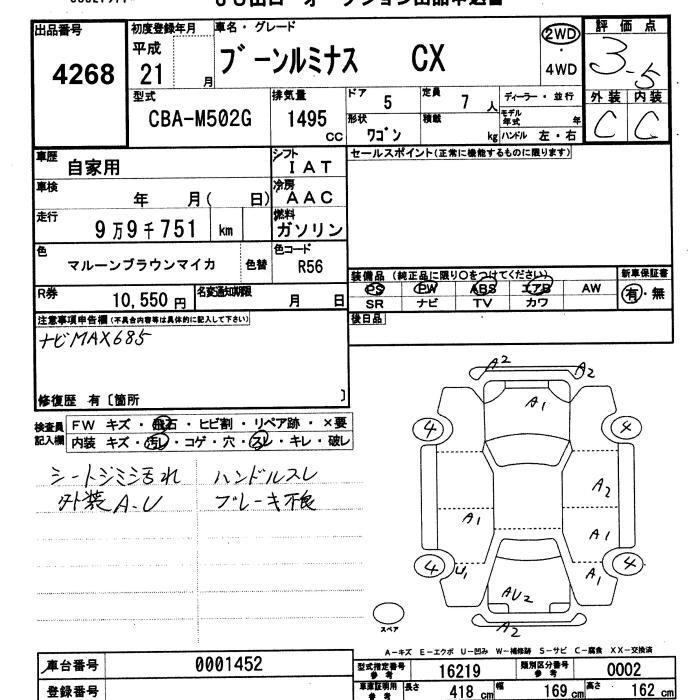 出品番号
4268
初度登録年月
平成
21 月
車名・グレード
ブーンルミナス CX
2WD
・
4WD
評価点
3.5
外装 内装
C C
型式
CBA-M502G
排気量
1495 CC
ドア 5
定員 7 人
形状 ワゴン
積載 kg
ディーラー・並行
モデル年式 年
ハンドル 左・右
車歴
自家用
シフト
IAT
車検
年 月( 日)
冷房
AAC
走行
9万9千751 km
燃料
ガソリン
色
マルーンブラウンマイカ 色替
色コード
R56
R券
10,550円
名変通知期限
月 日
セールスポイント(正常に機能するものに限ります)
装備品(純正品に限り○をつけてください)
PS PW ABS エアB AW
SR ナビ TV カワ
新車保証書
有・無
後日品
注意事項申告欄(不具合内容等は具体的に記入して下さい)
ナビMAX685
修復歴 有〔箇所 〕
検査員
記入欄
FW キズ・飛石・ヒビ割・リペア跡・×要
内装 キズ・汚レ・コゲ・穴・スレ・キレ・破レ
シートシミ汚れ ハンドルスレ
外装A-U ブレーキ不良
A2 A2
A1
4 4
A2
A1 A1
4 U1 A1 4
AU2
A2
スペア
A-キズ E-エクボ U-凹み W-補修跡 S-サビ C-腐食 XX-交換済
車台番号
0001452
型式指定番号
参考
16219
類別区分番号
参考
0002
登録番号
車庫証明用
参考
長さ 418 cm
幅 169 cm
高さ 162 cm